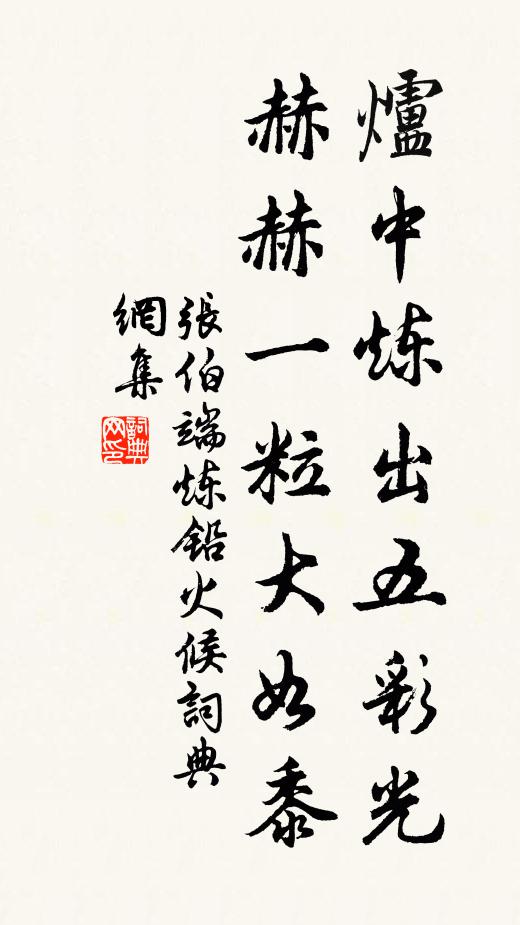 爐中炼出五彩光
赫赫一粒大如黍
張伯端炼鉛火候詞典
網集
詞典
网印